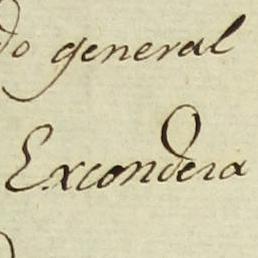 do general
Excondera